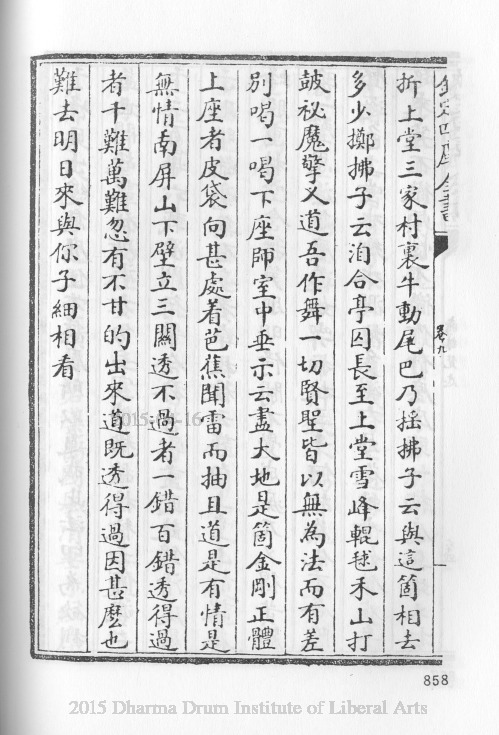 欽定四庫全書
卷九
折上堂三家村裏牛動尾巴乃搖拂子云與這箇相去
多少擲拂子云洎合亭囚長至上堂雪峰輥毬禾山打
皷祕魔擎义道吾作舞一切賢聖皆以無為法而有差
別喝一喝下座師室中垂示云盡大地是箇金剛正體
上座者皮袋向甚處着芭蕉聞雷而抽且道是有情是
無情南屏山下壁立三關透不過者一錯百錯透得過
者千難萬難忽有不甘的出來道既透得過因甚麽也
難去明日來與你子細相看
858
2015 Dharma Drum Institute of Liberal Arts